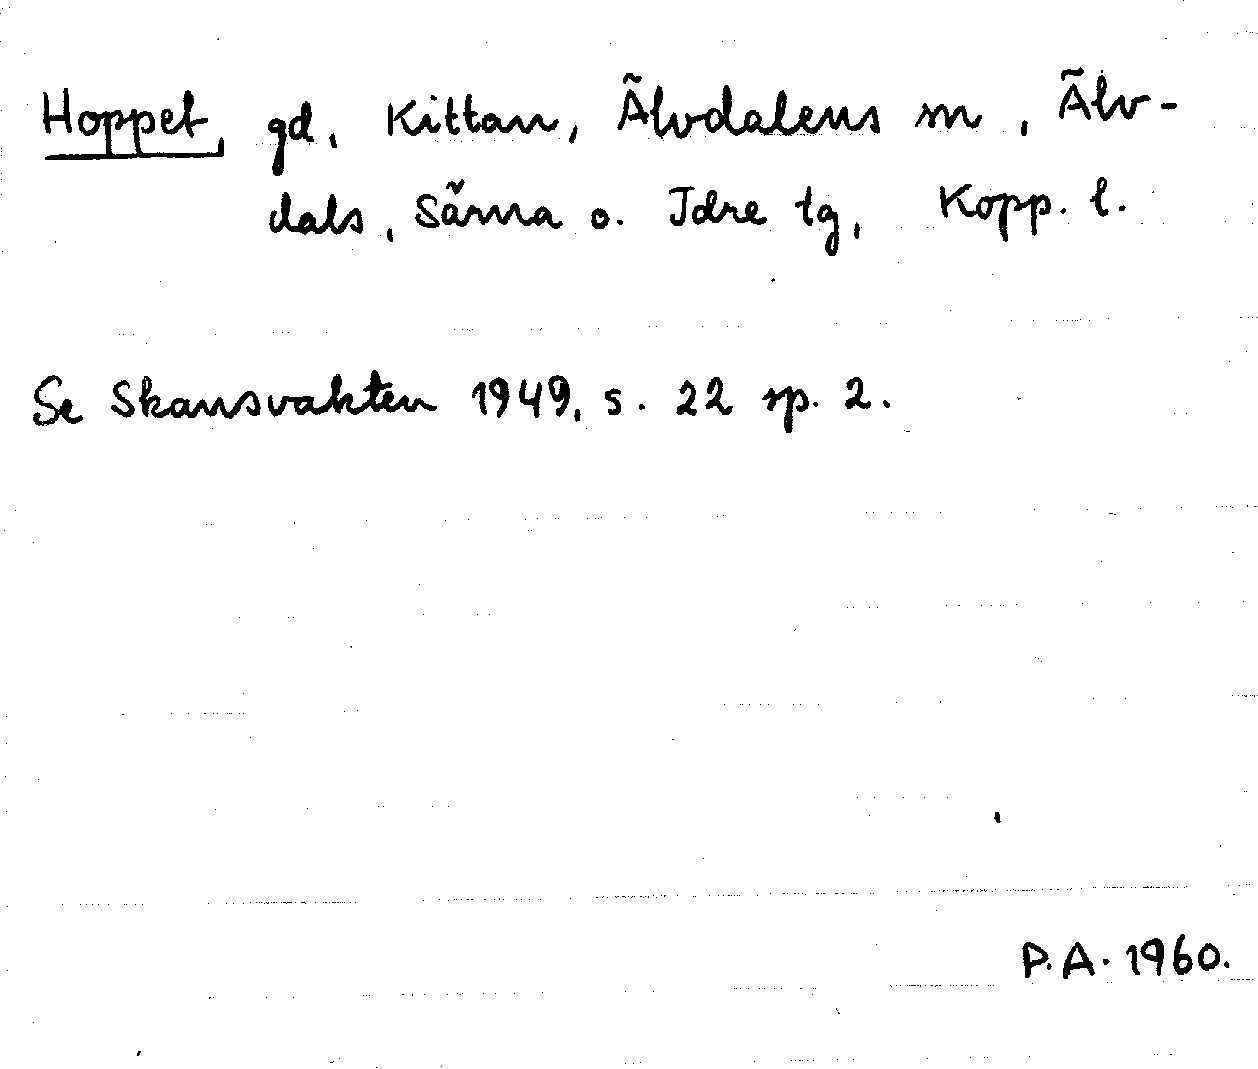 Hoppet, gd, Kittan, Älvdalens sn, Älv-
dals, Särna o. Idre tg, Kopp. l.
Se Skansvakten 1949, s. 22 sp. 2.
P.A. 1960.